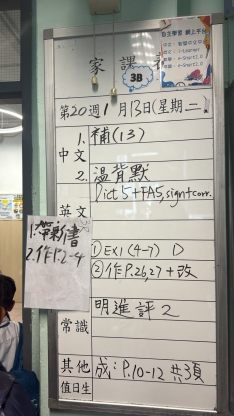 家課表
3B
自主學習 網上平台
第20週 1月13日(星期二)
中文
1. 補(13)
2. 溫背默
英文
Dict 5+FA5, sign+corr.
1.帶新書
2.作P.2-4
① EX1 (4-7) D
② 作P.26,27 + 改
常識
明進評2
其他
成:P.10-12 共3頁
值日生